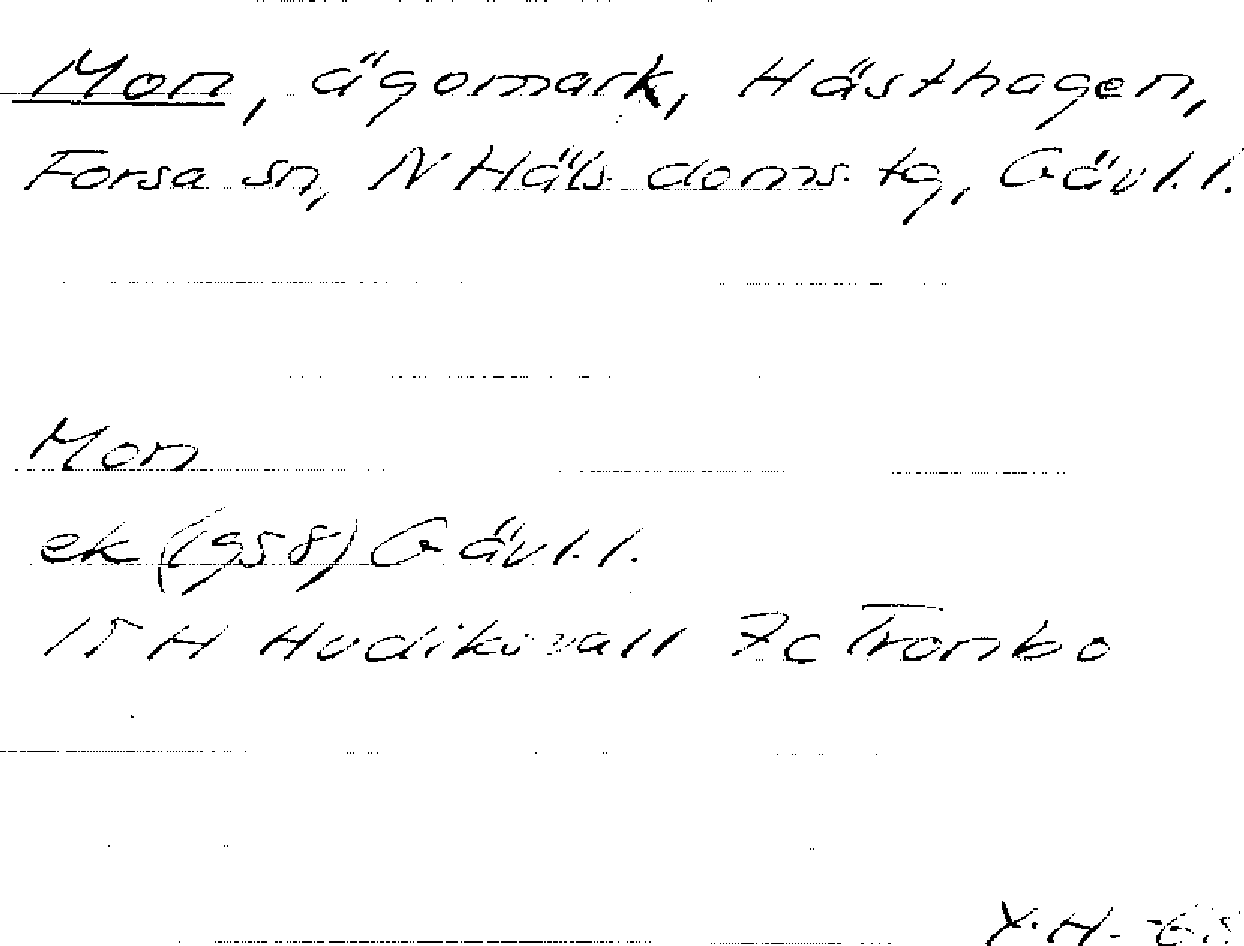 Mon, ägomark, Hästhagen,
Forsa sn, N Häls. doms. tg, Gävl.l.
Mon
ek (1958) Gävl.l.
15 H Hudiksvall 7c Trombo
Y.H.